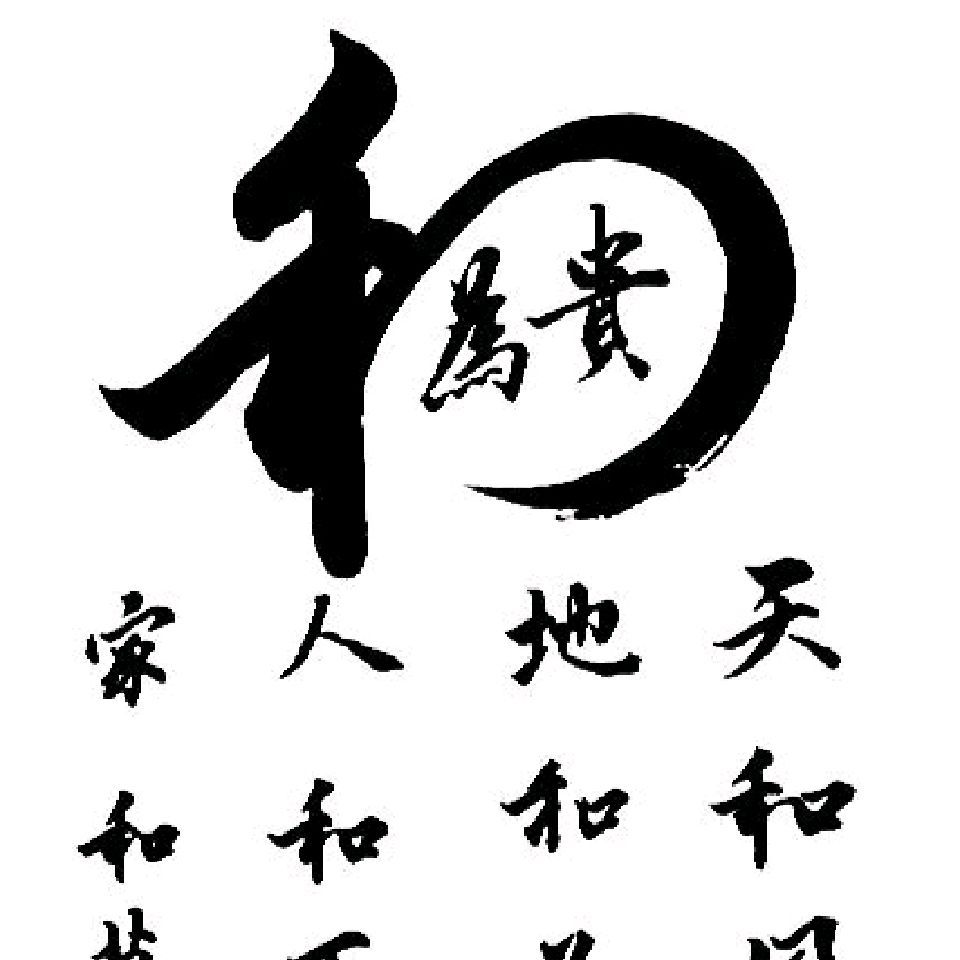 和
為貴
天和
地和
人和
家和